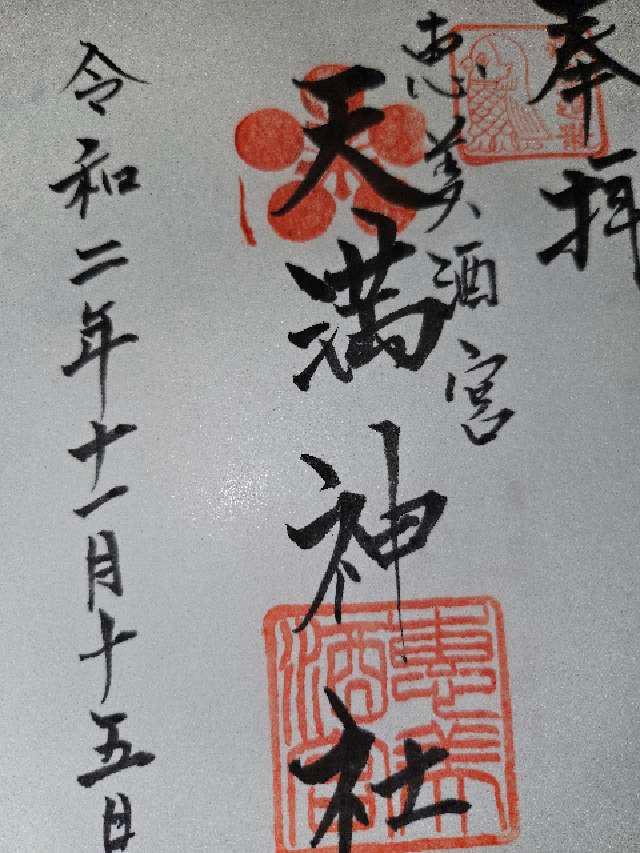 奉拝
恵美酒宮
天満神社
令和二年十一月十五日
恵美酒宮